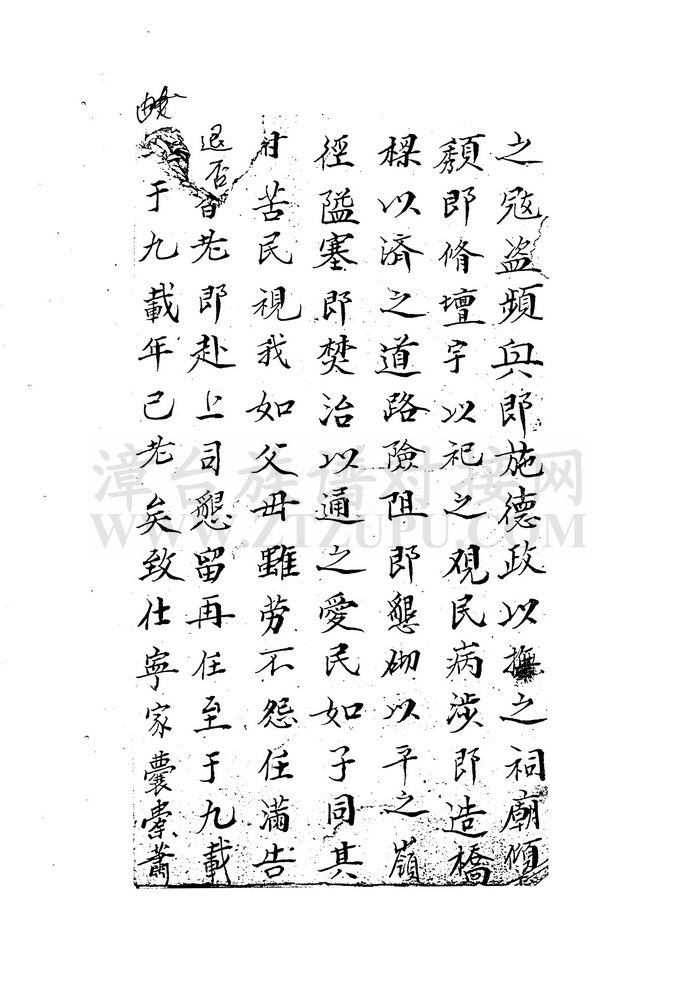 之寇盗頻興即施德政以撫之祠廟傾
頹即脩壇宇以祀之观民病涉即造橋
樑以済之道路險阻即懇砌以平之嶺
徑隘塞即焚治以通之愛民如子同其
甘苦民視我如父毋雖劳不怨任滿告
退否百老即赴上司懇留再任至于九載
于九載年已老矣致仕寧家囊橐蕭
漳台族谱对接网
WWW.ZTZUPU.COM